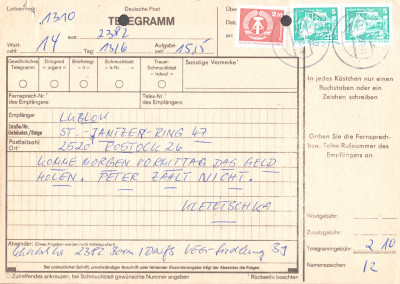 Leitvermerk 1310 Deutsche Post
TELEGRAMM
aus 2382
Wort-zahl 14 Tag 13/6 Aufgabe-zeit 1515
Gewöhnliches Telegramm Dringend = urgent = Brieftelegramm Schmuckblatt = lx Nr. = Trauer-Schmuckblatt = lxdeuil = Charakter Sonstige Vermerke¹
Fernsprech-Nr. des Empfängers Telex-Nr. des Empfängers
In jedes Kästchen nur einen Buchstaben oder ein Zeichen schreiben
Empfänger LUBLOW
Straße/Nr. Gebäudeteil/Etage ST.-JANTZEN-RING 47
Postleitzahl Ort 2520 ROSTOCK 26
KOMME MORGEN VORMITTAG DAS GELD
HOLEN. PETER ZAHLT NICHT.
KLETETSCHKA
Geben Sie die Fernsprech- bzw. Telex-Rufnummer des Empfängers an
Wortgebühr:
Zusatzgebühr:
Telegrammgebühr: 2 10
Namenszeichen: 12
Absender (Diese Angaben werden nicht mittelegrafiert)
2382 Born/Darß VEG-Siedlung
Bei undeutlicher Schrift, unvollständiger Anschrift oder fehlender Absenderangabe trägt der Absender die Folgen.
Zutreffendes ankreuzen, bei Schmuckblatt gewünschte Nummer angeben ¹ Rückseite beachten